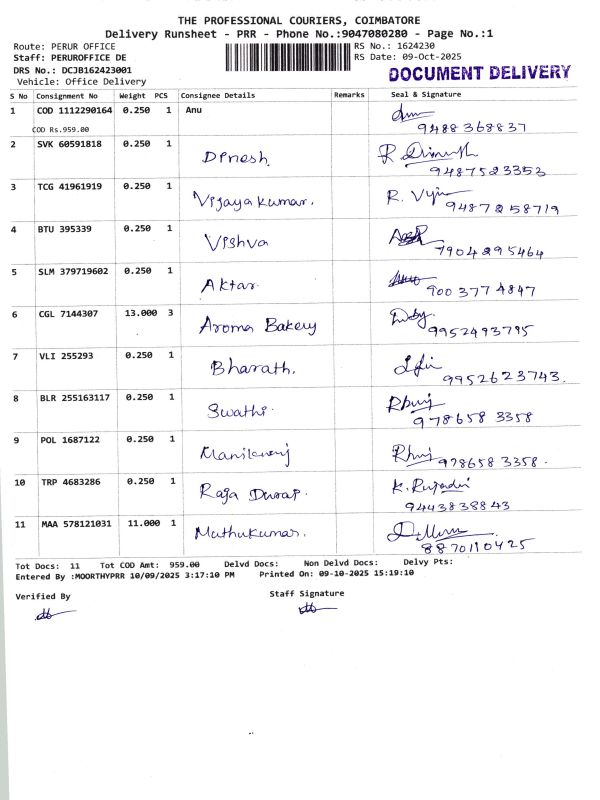 THE PROFESSIONAL COURIERS, COIMBATORE
Delivery Runsheet - PRR - Phone No.:9047080280 - Page No.:1
Route: PERUR OFFICE RS No.: 1624230
Staff: PERUROFFICE DE RS Date: 09-Oct-2025
DRS No.: DCJB162423001 DOCUMENT DELIVERY
Vehicle: Office Delivery
S No Consignment No Weight PCS Consignee Details Remarks Seal & Signature
1 COD 1112290164 0.250 1 Anu
COD Rs.959.00 9488368837
2 SVK 60591818 0.250 1 Dinesh R. Dinesh
9487523353
3 TCG 41961919 0.250 1 Vijayakumar. R. Vijay
9487258719
4 BTU 395339 0.250 1 Vishva
7904295464
5 SLM 379719602 0.250 1 Aktar
9003774847
6 CGL 7144307 13.000 3 Aroma Bakery
9952493795
7 VLI 255293 0.250 1 Bharath.
9952623743.
8 BLR 255163117 0.250 1 Swathi.
978658 3358
9 POL 1687122 0.250 1
978658 3358.
10 TRP 4683286 0.250 1 Raja Durai.
9443838843
11 MAA 578121031 11.000 1 Muthukumar.
8870110425
Tot Docs: 11 Tot COD Amt: 959.00 Delvd Docs: Non Delvd Docs: Delvy Pts:
Entered By :MOORTHYPRR 10/09/2025 3:17:10 PM Printed On: 09-10-2025 15:19:10
Verified By Staff Signature